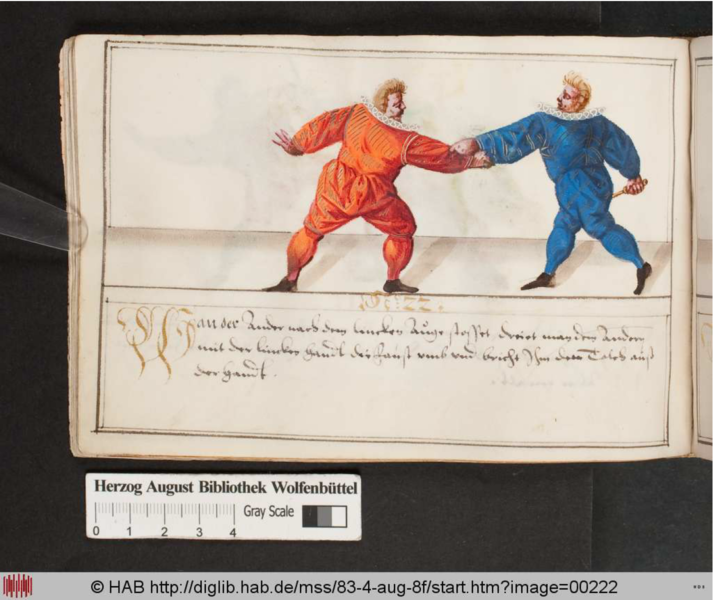 22.
Wan der Ander nach dem lincken Auge stosset, dreiet man dem Andern
mit der lincken handt die faust umb und bricht Ihm den Dolch aus
der handt.
Herzog August Bibliothek Wolfenbüttel
Gray Scale
0 1 2 3 4
© HAB http://diglib.hab.de/mss/83-4-aug-8f/start.htm?image=00222